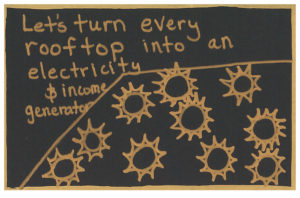 Let's turn every
rooftop into an
electricity
$ income
generator